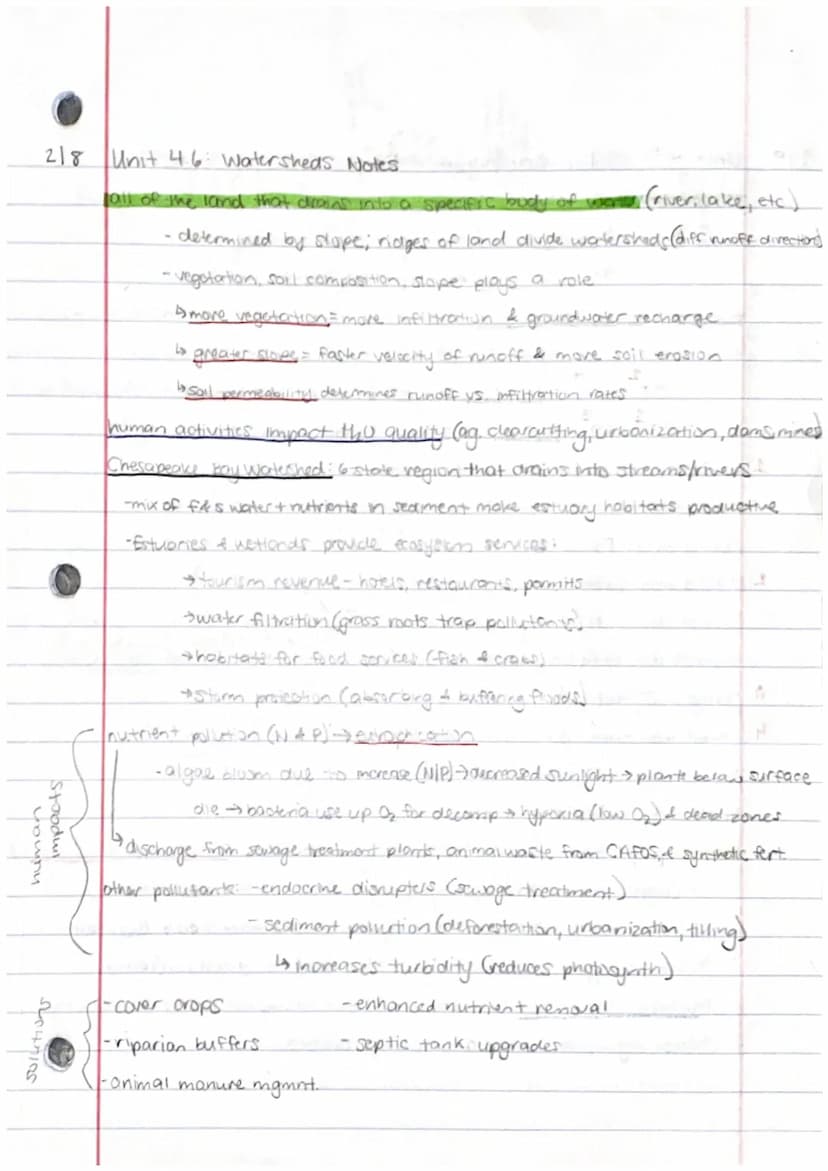 2/8 Unit 4.6: Watersheds Notes
all of the land that drains into a specific body of water (river, lake, etc)
- determined by slope; ridges of land divide watersheds (diff runoff direction)
- vegetation, soil composition, slope plays a role
↳ more vegetation = more infiltration & groundwater recharge
↳ greater slope = faster velocity of runoff & more soil erosion
↳ soil permeability determines runoff vs. infiltration rates
human activities impact H2O quality (ag. clearcutting, urbanization, dams, mines)
Chesapeake Bay Watershed: 6 state region that drains into streams/rivers
- mix of f & s water + nutrients in sediment make estuary habitats productive
- Estuaries & wetlands provide ecosystem services:
→ tourism revenue - hotels, restaurants, permits
→ water filtration (grass roots trap pollutants)
→ habitats for food services (fish & crabs)
→ storm protection (absorbing & buffering floods)
human impacts
nutrient pollution (N & P) →
- algae bloom due to increase (N/P) → decreased sunlight → plants below surface
die → bacteria use up O2 for decomp → hypoxia (low O2) & dead zones
↳ discharge from sewage treatment plants, animal waste from CAFOs, & synthetic fert
other pollutants: - endocrine disrupters (sewage treatment)
- sediment pollution (deforestation, urbanization, tilling)
↳ increases turbidity (reduces photosynth)
solutions
- cover crops - enhanced nutrient removal
- riparian buffers - septic tank upgrades
- animal manure mgmnt.